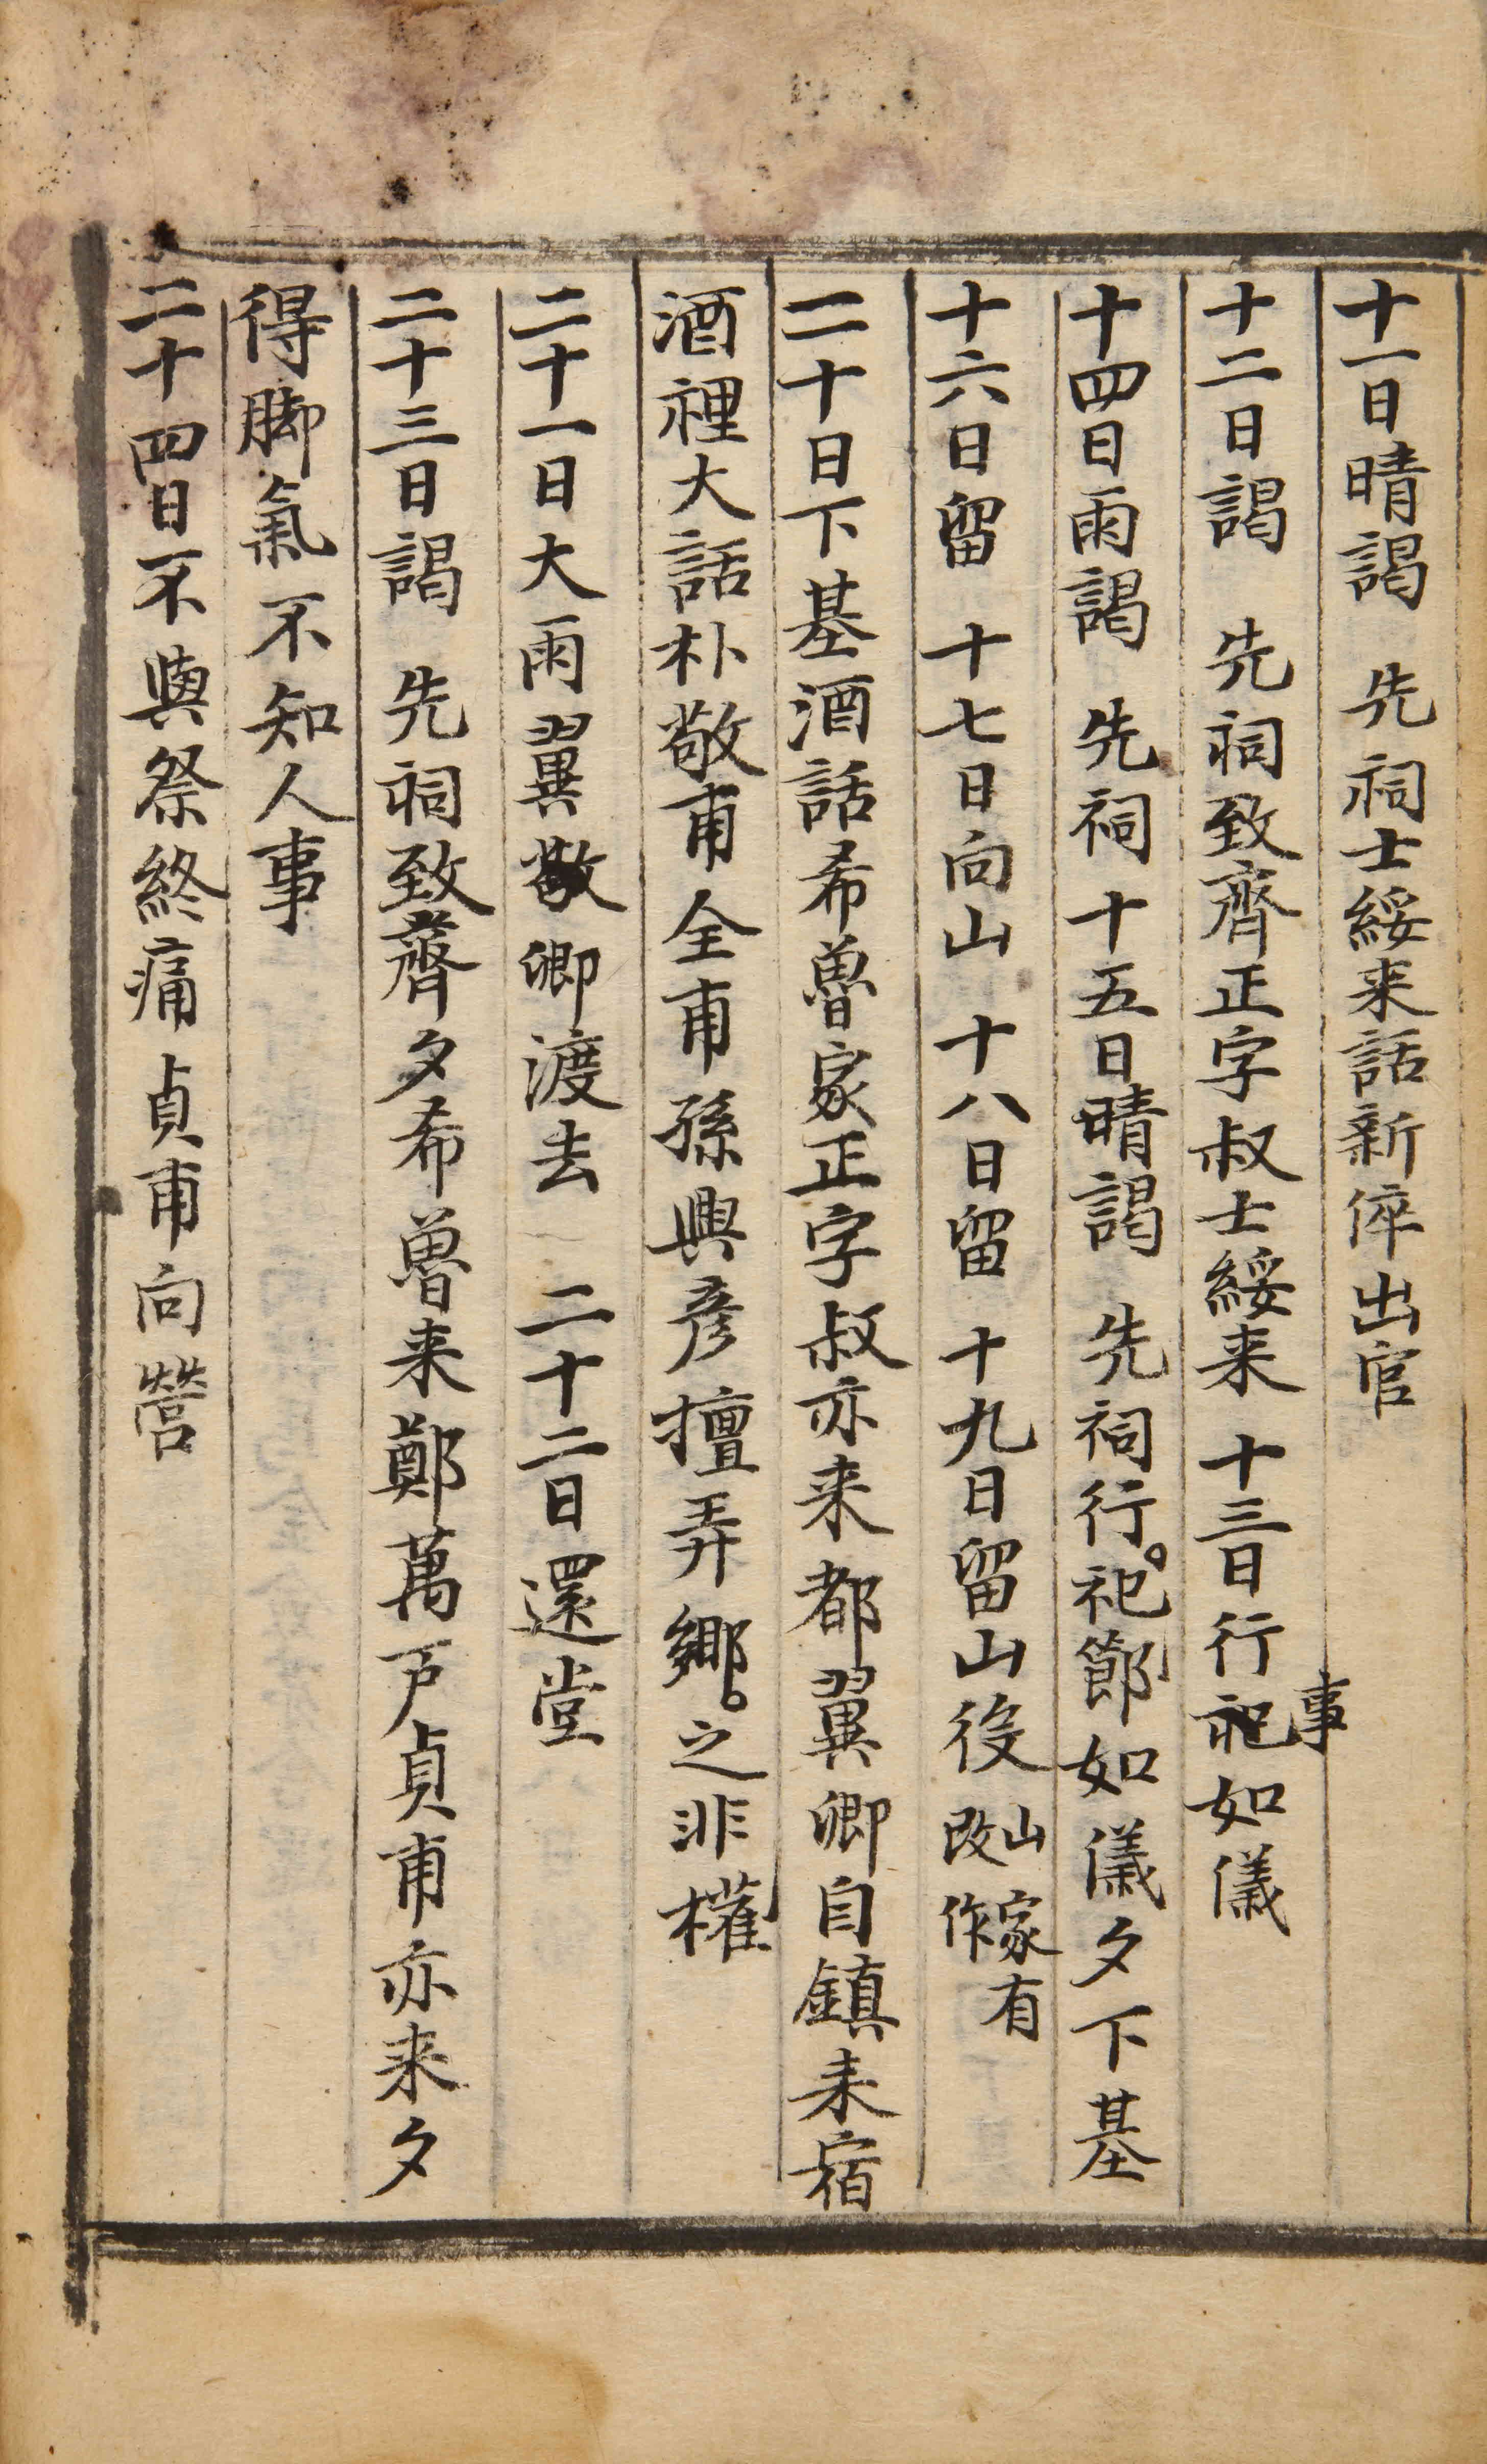 十一日晴謁 先祠士綏来話新倅出官
十二日謁 先祠致齊正字叔士綏来 十三日行祀事如儀
十四日雨謁 先祠 十五日晴謁 先祠行祀節如儀夕下基
十六日留 十七日向山 十八日留 十九日留山役山家有改作
二十日下基酒話希魯家正字叔亦来都翼卿自鎮来宿
酒裡大話朴敬甫全甫孫興彦擅弄鄉之非權
二十一日大雨翼敬卿渡去 二十二日還堂
二十三日謁 先祠致齊夕希魯来鄭萬戶貞甫亦来夕
得脚氣不知人事
二十四日不與祭終痛貞甫向營